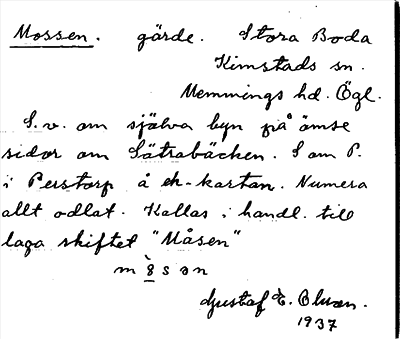 Mossen. gärde. Stora Boda
Kimstads sn.
Memmings hd. Ögl.
S.v. om själva byn på ömse
sidor om Sätrabäcken. S om P.
i Perstorp å ek-kartan. Numera
allt odlat. Kallas i handl. till
laga skiftet "Måsen"
Gustaf E. Olson.
1937